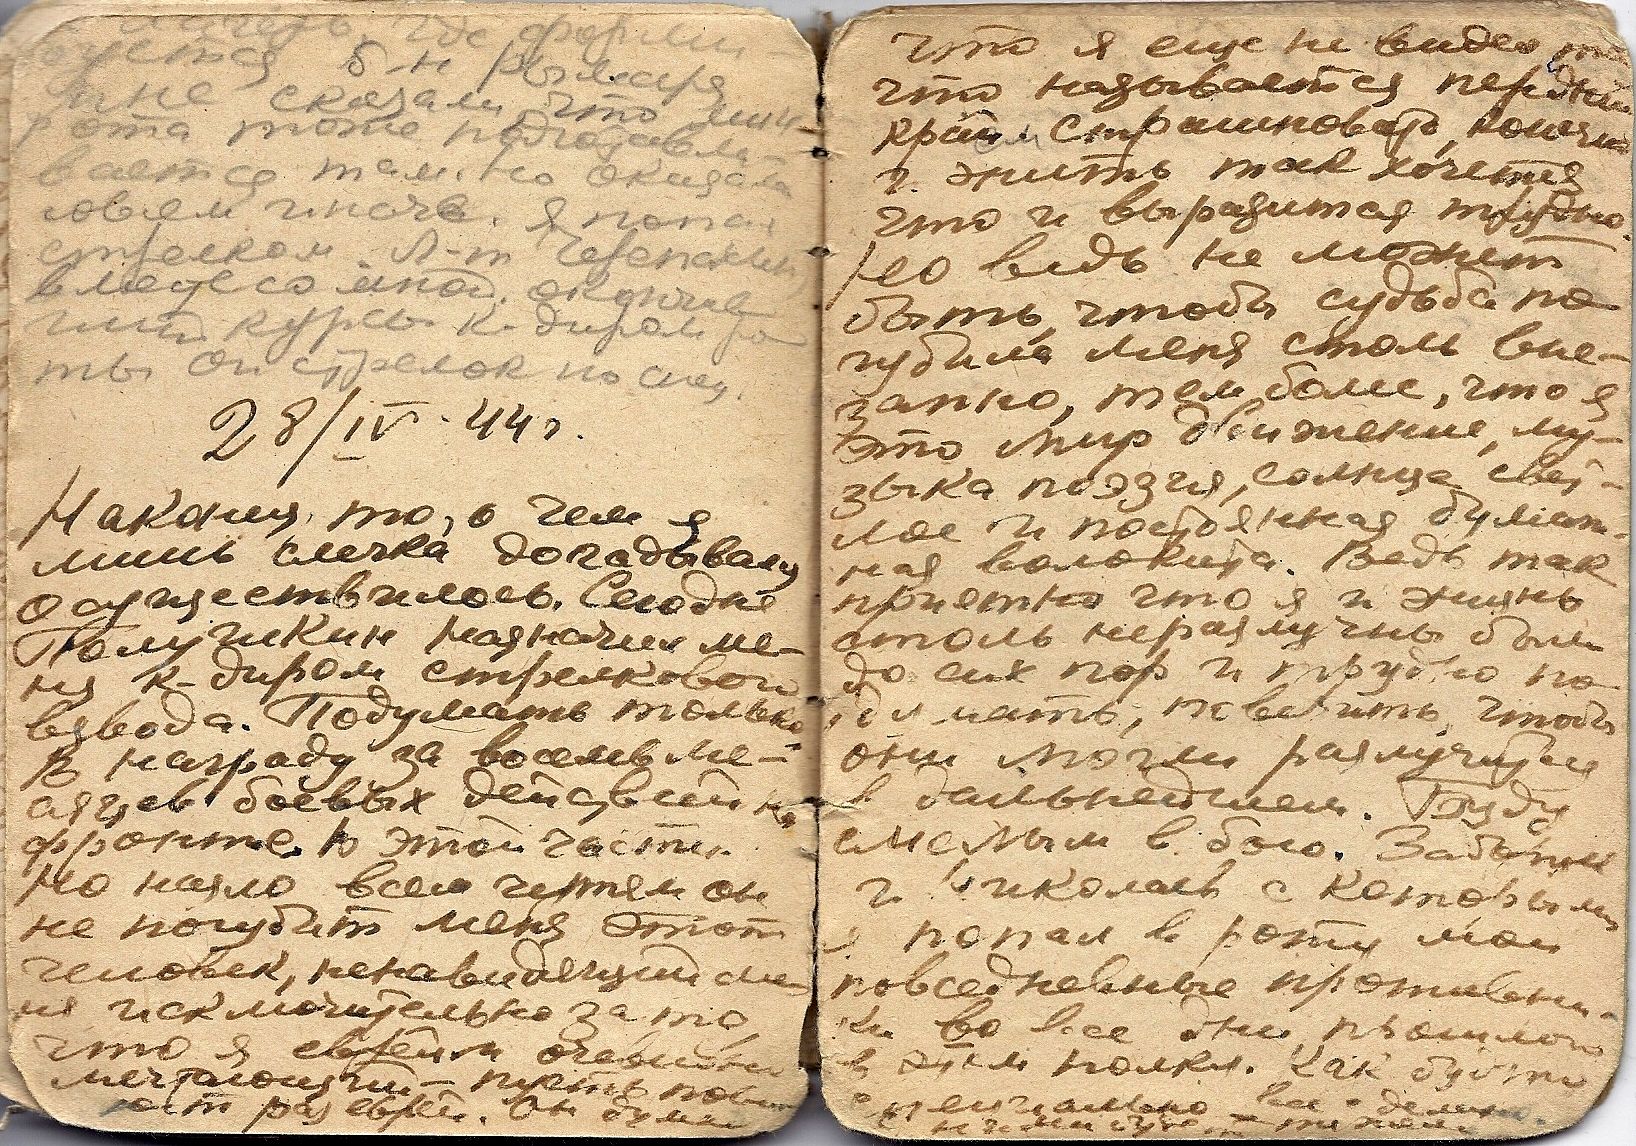 где форми
руется б-н
мне сказали что мин
рота тоже подготавли-
вается там. Но оказало
совсем иначе. Я попал
стрелком. Л-т
вместе со мной, окончив
ший курсы к-диром ро
ты он стрелок по спец.
28/IV-44 г.
Наконец, то, о чем я
лишь слегка догадывался
осуществилось. Сегодня
Полушкин назначил ме-
ня к-диром стрелкового
взвода. Подумать только
В награду за восемь ме-
сяцев боевых действий на
фронте. В этой части.
Но назло всем чертям он
не погубит меня этот
человек, ненавидящий ме
ня исключительно за то,
что я еврей и очевидно
мечтающий – пусть
еврей. Он
что я еще не видел то
что называется передний
край. Страшновато, конечно
и жить так хочется
что и выразится трудно.
Но ведь не может
быть, чтобы судьба по
губила меня столь вне-
запно, тем более, что я
это мир движение, му-
зыка поэзия, солнце свет-
лое и постоянная бумаж-
ная волокита. Ведь так
приятно что я и жизнь
столь неразлучны были
до сих пор и трудно по
думать, поверить, чтобы
они могли разлучиться
в дальнейшем. Буду
смелым в бою.
и Николаев с которым
я попал в роту мои
повседневные противни-
ки во все дни прошлого
в этом полку. Как будто
специально все